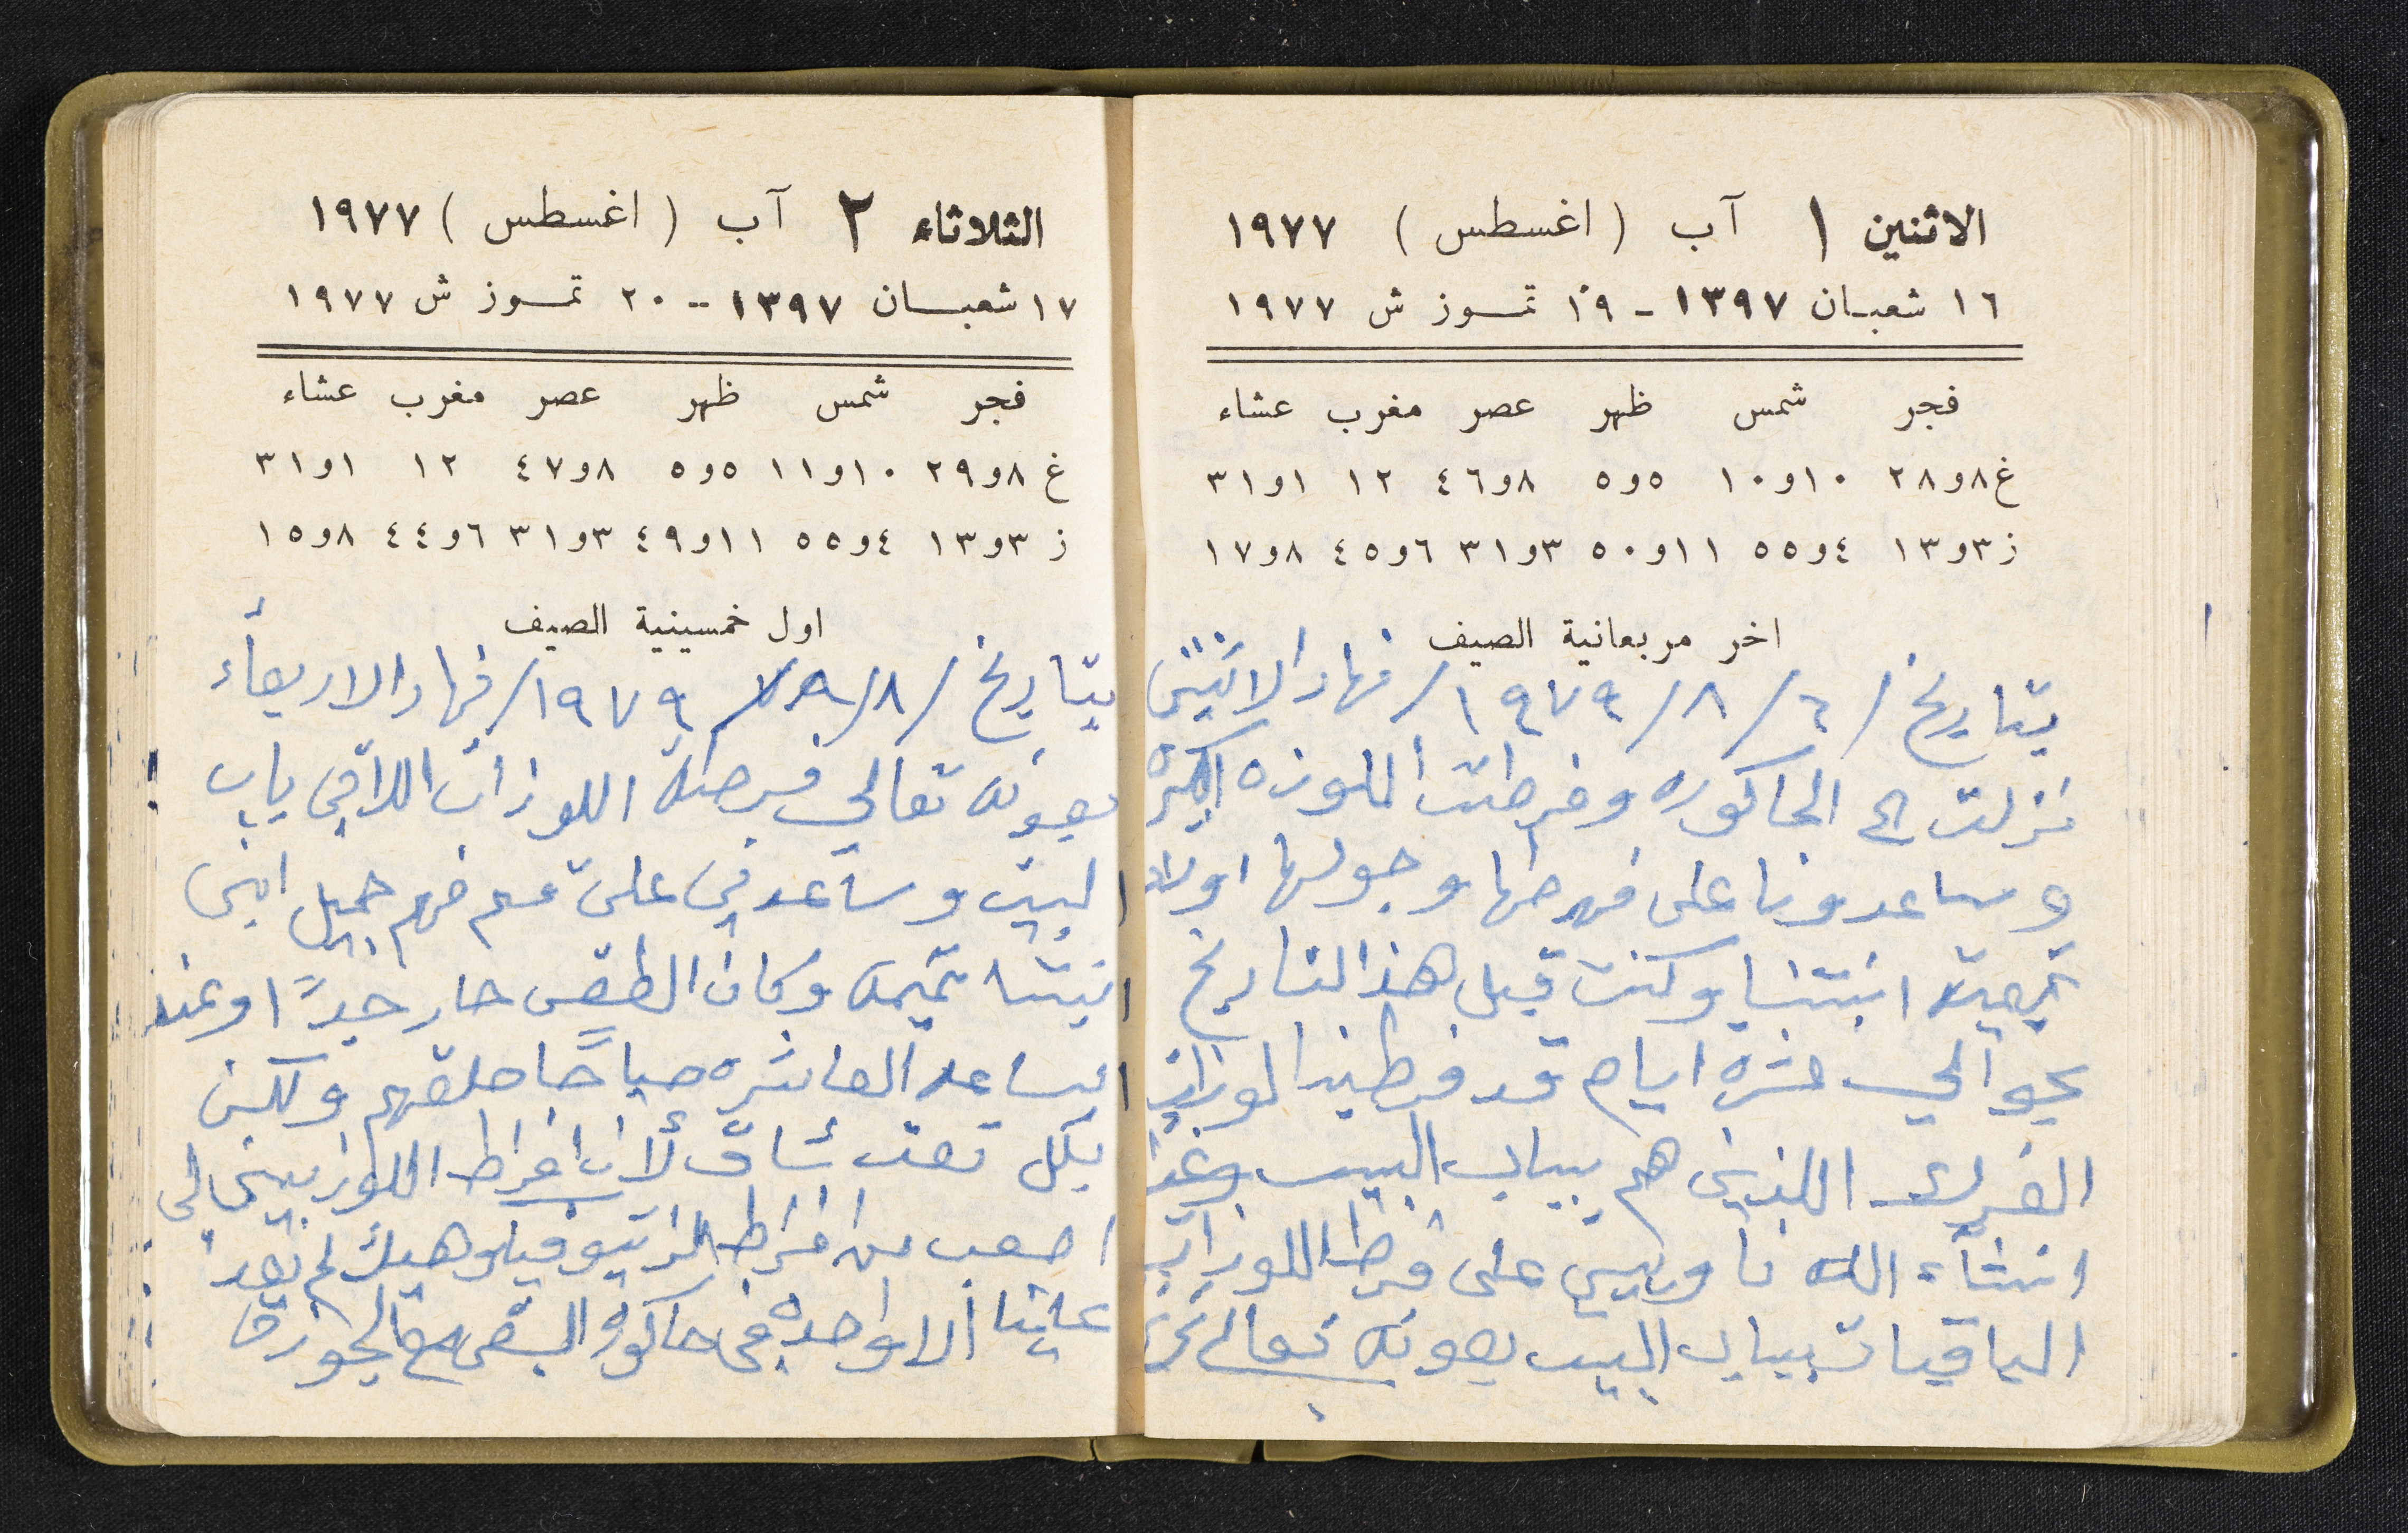 الاثنين ١ آب (اغسطس) ١٩٧٧
١٦ شعبان ١٣٩٧ - ١٩ تموز ش ١٩٧٧
فجر شمس ظهر عصر مغرب عشاء
غ ٨و٢٨ ١٠و١٠ ٥و٥ ٨و٤٦ ١٢ ١و٣١
ز ٣و١٣ ٤و٥٥ ١١و٥٠ ٣و٣١ ٦و٤٥ ٨و١٧
اخر مربعانية الصيف
بتاريخ /٦/٨/١٩٧٩/ نهار الاثنين
نزلت الى الحاكوره وفرطت اللوزه
وساعدونا على فرطها وجولها اولاد
انبتنا وكنت قبل هذا التاريخ
بحوالي عشرة ايام قد فرطنا لوزات
الفرك اللذين هم بباب البيت وغدا
انشاء الله ناويين على فرط اللوزات
الباقيات بباب البيت بعونه تعالى
الثلاثاء ٢ آب (اغسطس) ١٩٧٧
١٧ شعبان ١٣٩٧ - ٢٠ تموز ش ١٩٧٧
فجر شمس ظهر عصر مغرب عشاء
غ ٨و٢٩ ١٠و١١ ٥و٥ ٨و٤٧ ١٢ ١و٣١
ز ٣و١٣ ٤و٥٥ ١١و٤٩ ٣و٣١ ٦و٤٤ ٨و١٥
اول خمسينية الصيف
بتاريخ /٨/٨/١٩٧٩/ نهار الاربعاء
بعونه تعالى فرطت اللوزات اللاتي باب
البيت وساعدني على فرطهم جميل ابن
انبتنا تميمه وكان الطقس حار جداً وعند
الساعه العاشره صباحاً خلصتهم ولكن
بكل تعب شاق لأن افراط اللوز
اصعب من افراط الزيتون وهيك لم يعد
علينا الا واحده في حاكورة